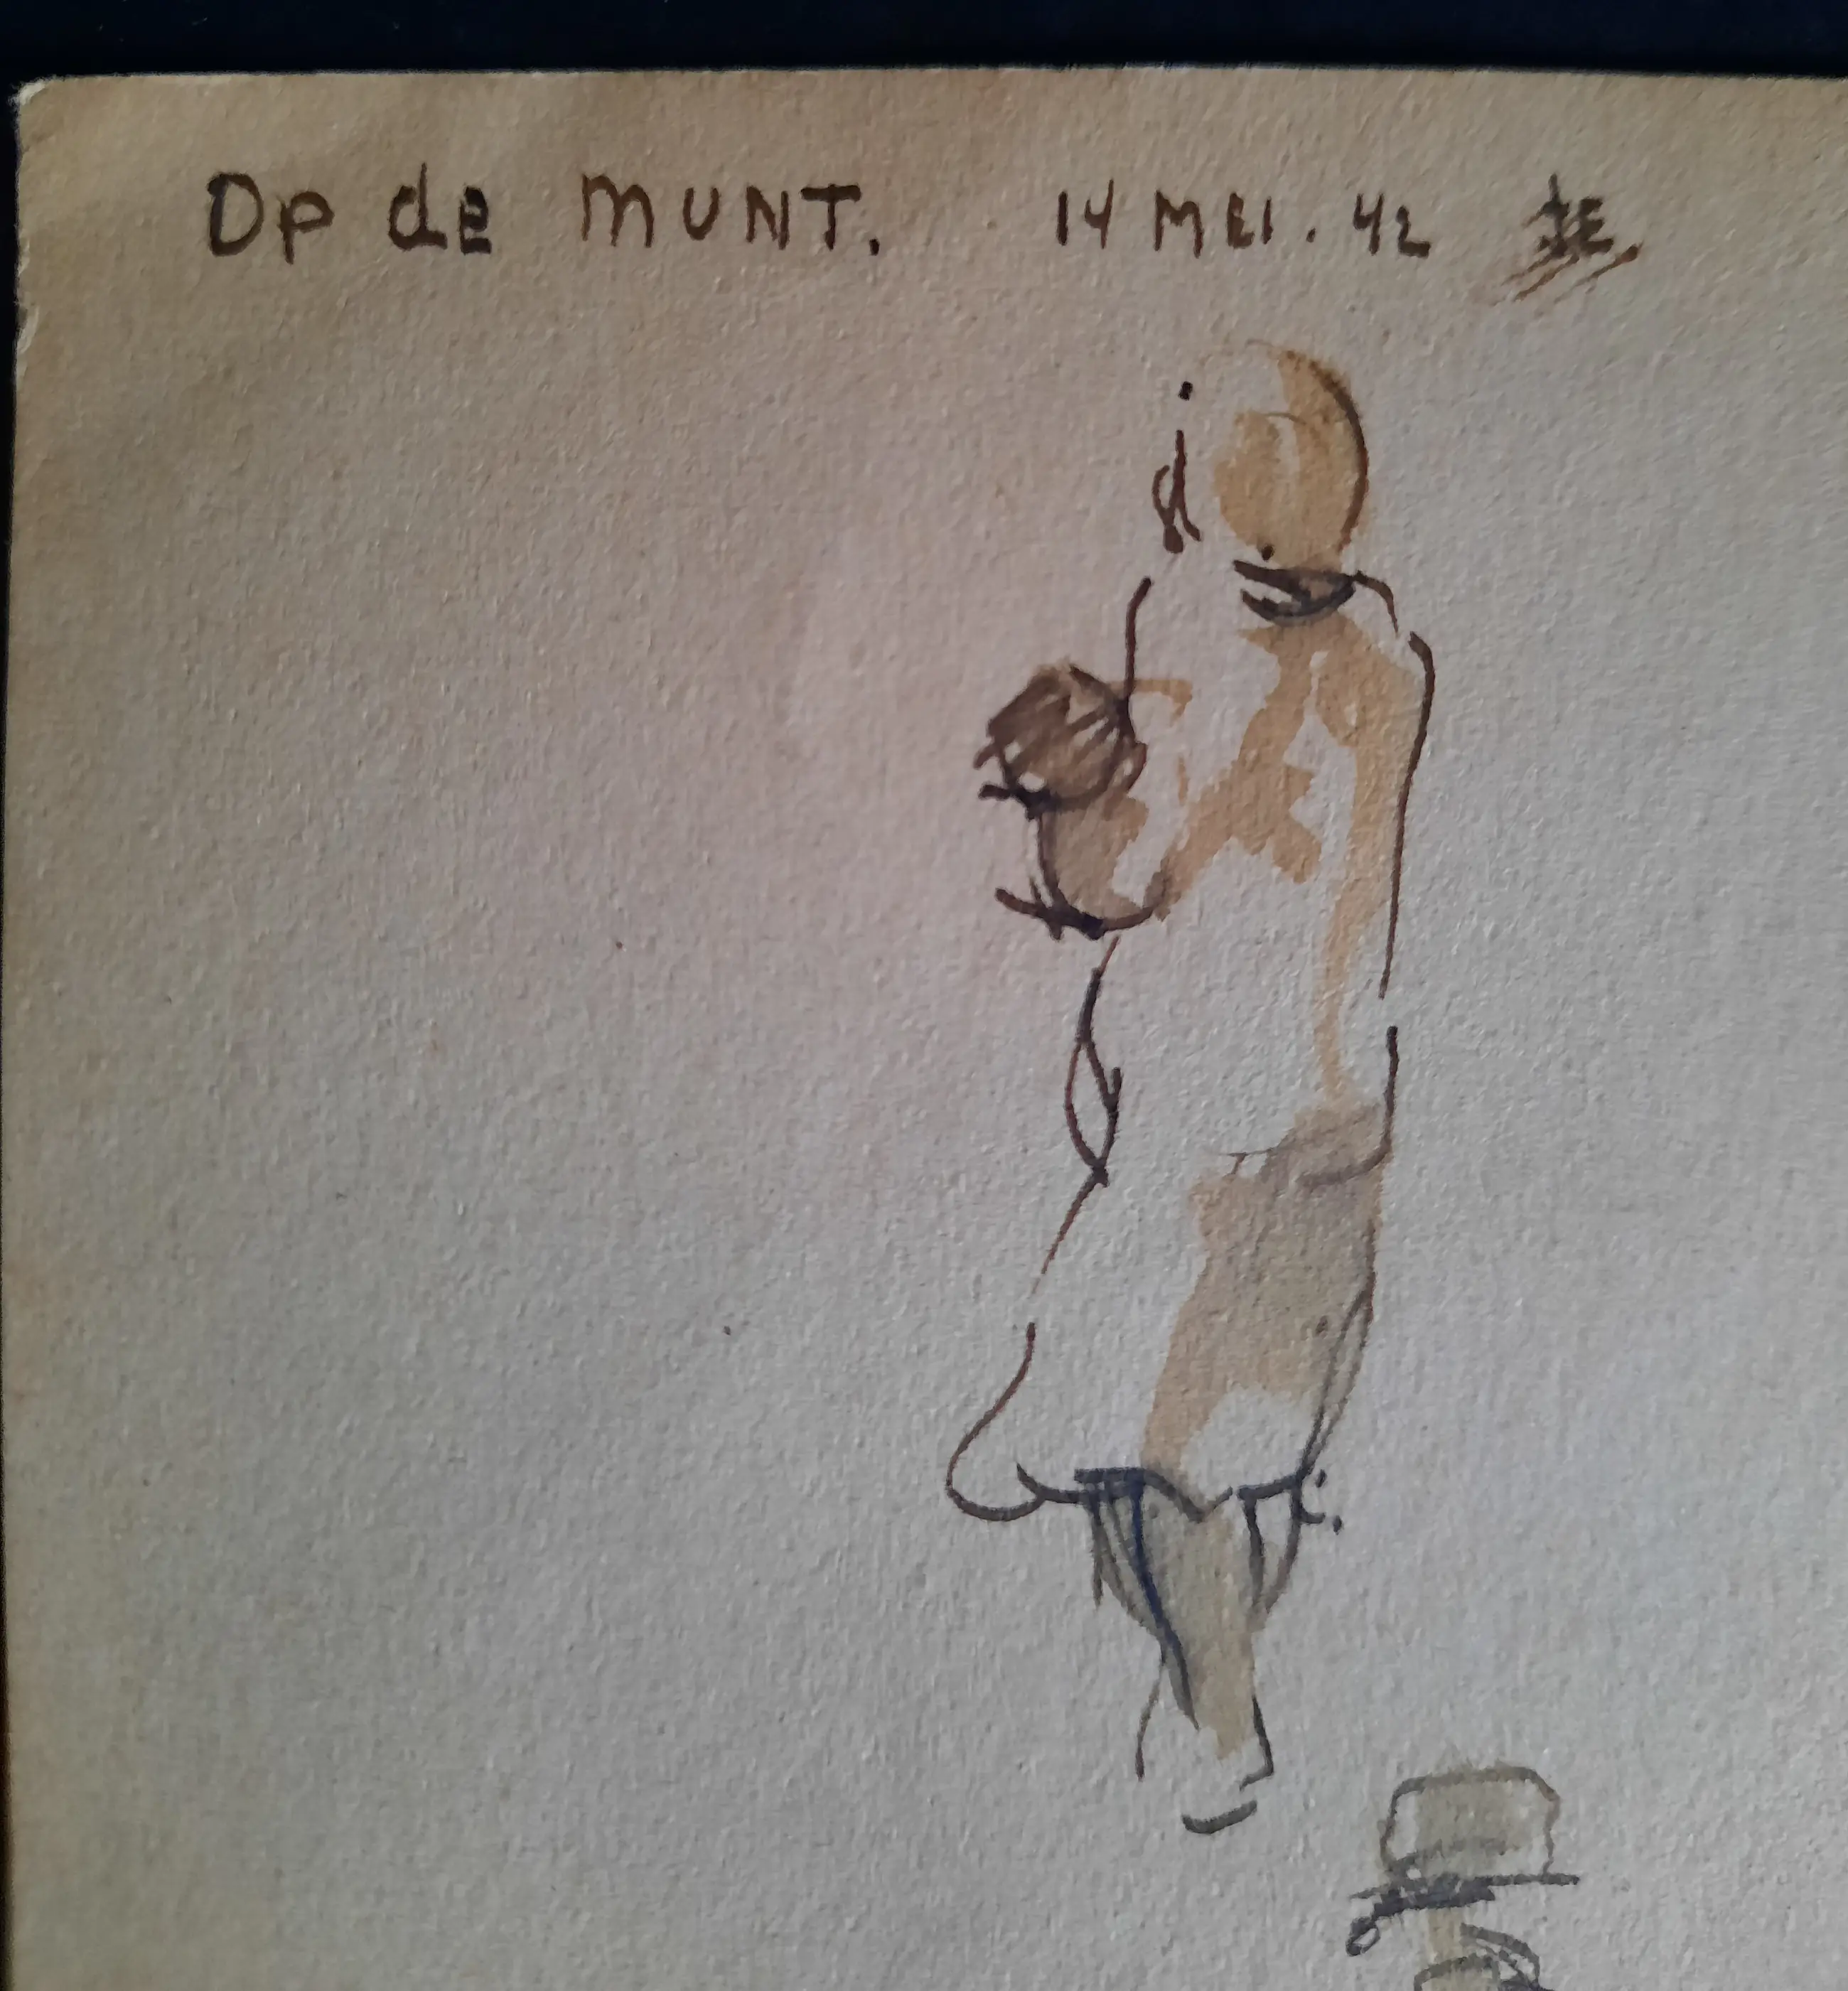 Op de MUNT. 14 MEI. 42